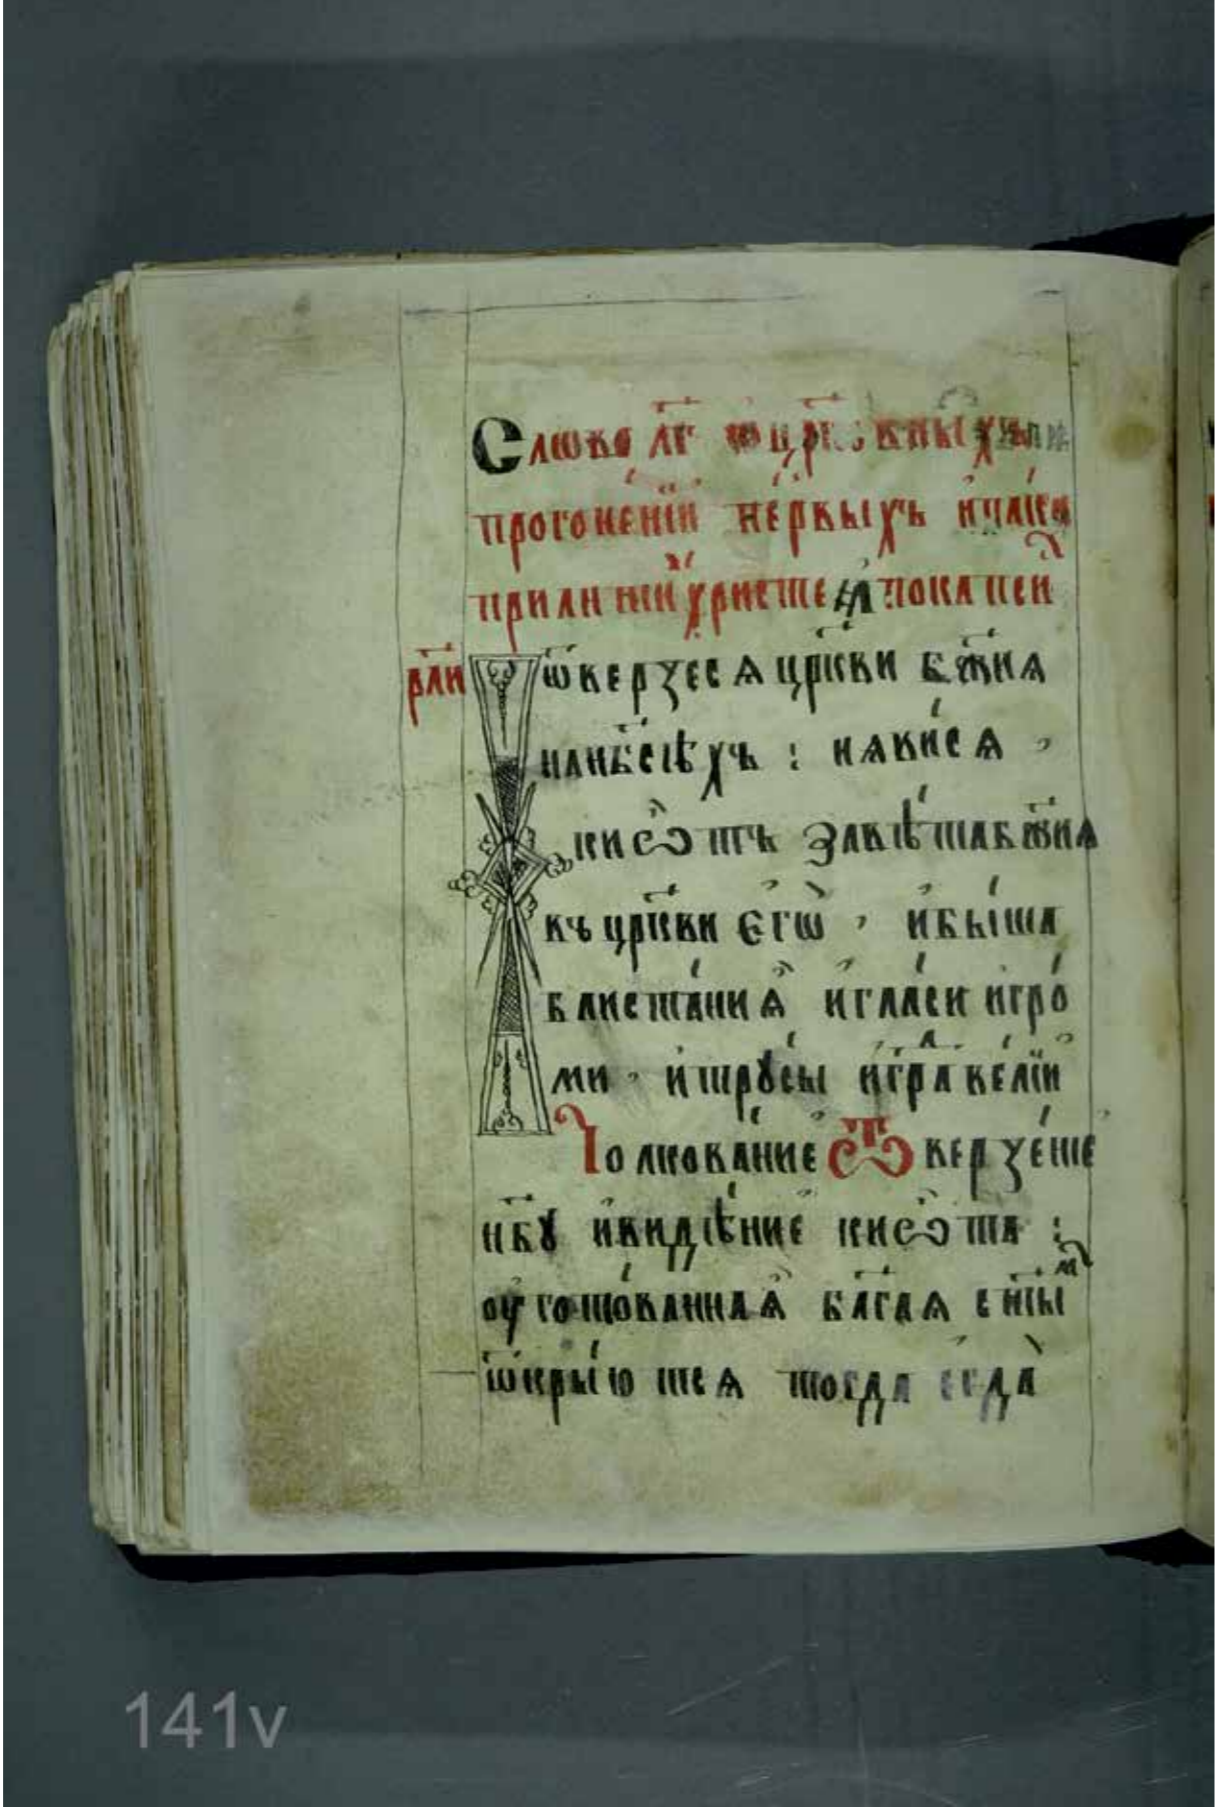 Слѡво лг҃ ѡ цр҃ковныхъ
прогонении первыхъ и послѣ
при антихристе апокалпсиⷭ
рли ѿверзеся цр҃кви бж҃ия
на нб҃сѣхъ : и явися ,
киѡтъ завѣта бж҃ия
въ цр҃кви егѡ , и быша
блистания и гласи и гро
ми , и трꙋсы и градъ велїи
Толкование Ѿверзение
нб҃ꙋ и видѣние киѡта :
оуготованная бл҃гая с ст҃ыⷨ
ѿкрыются тогда егда
141v